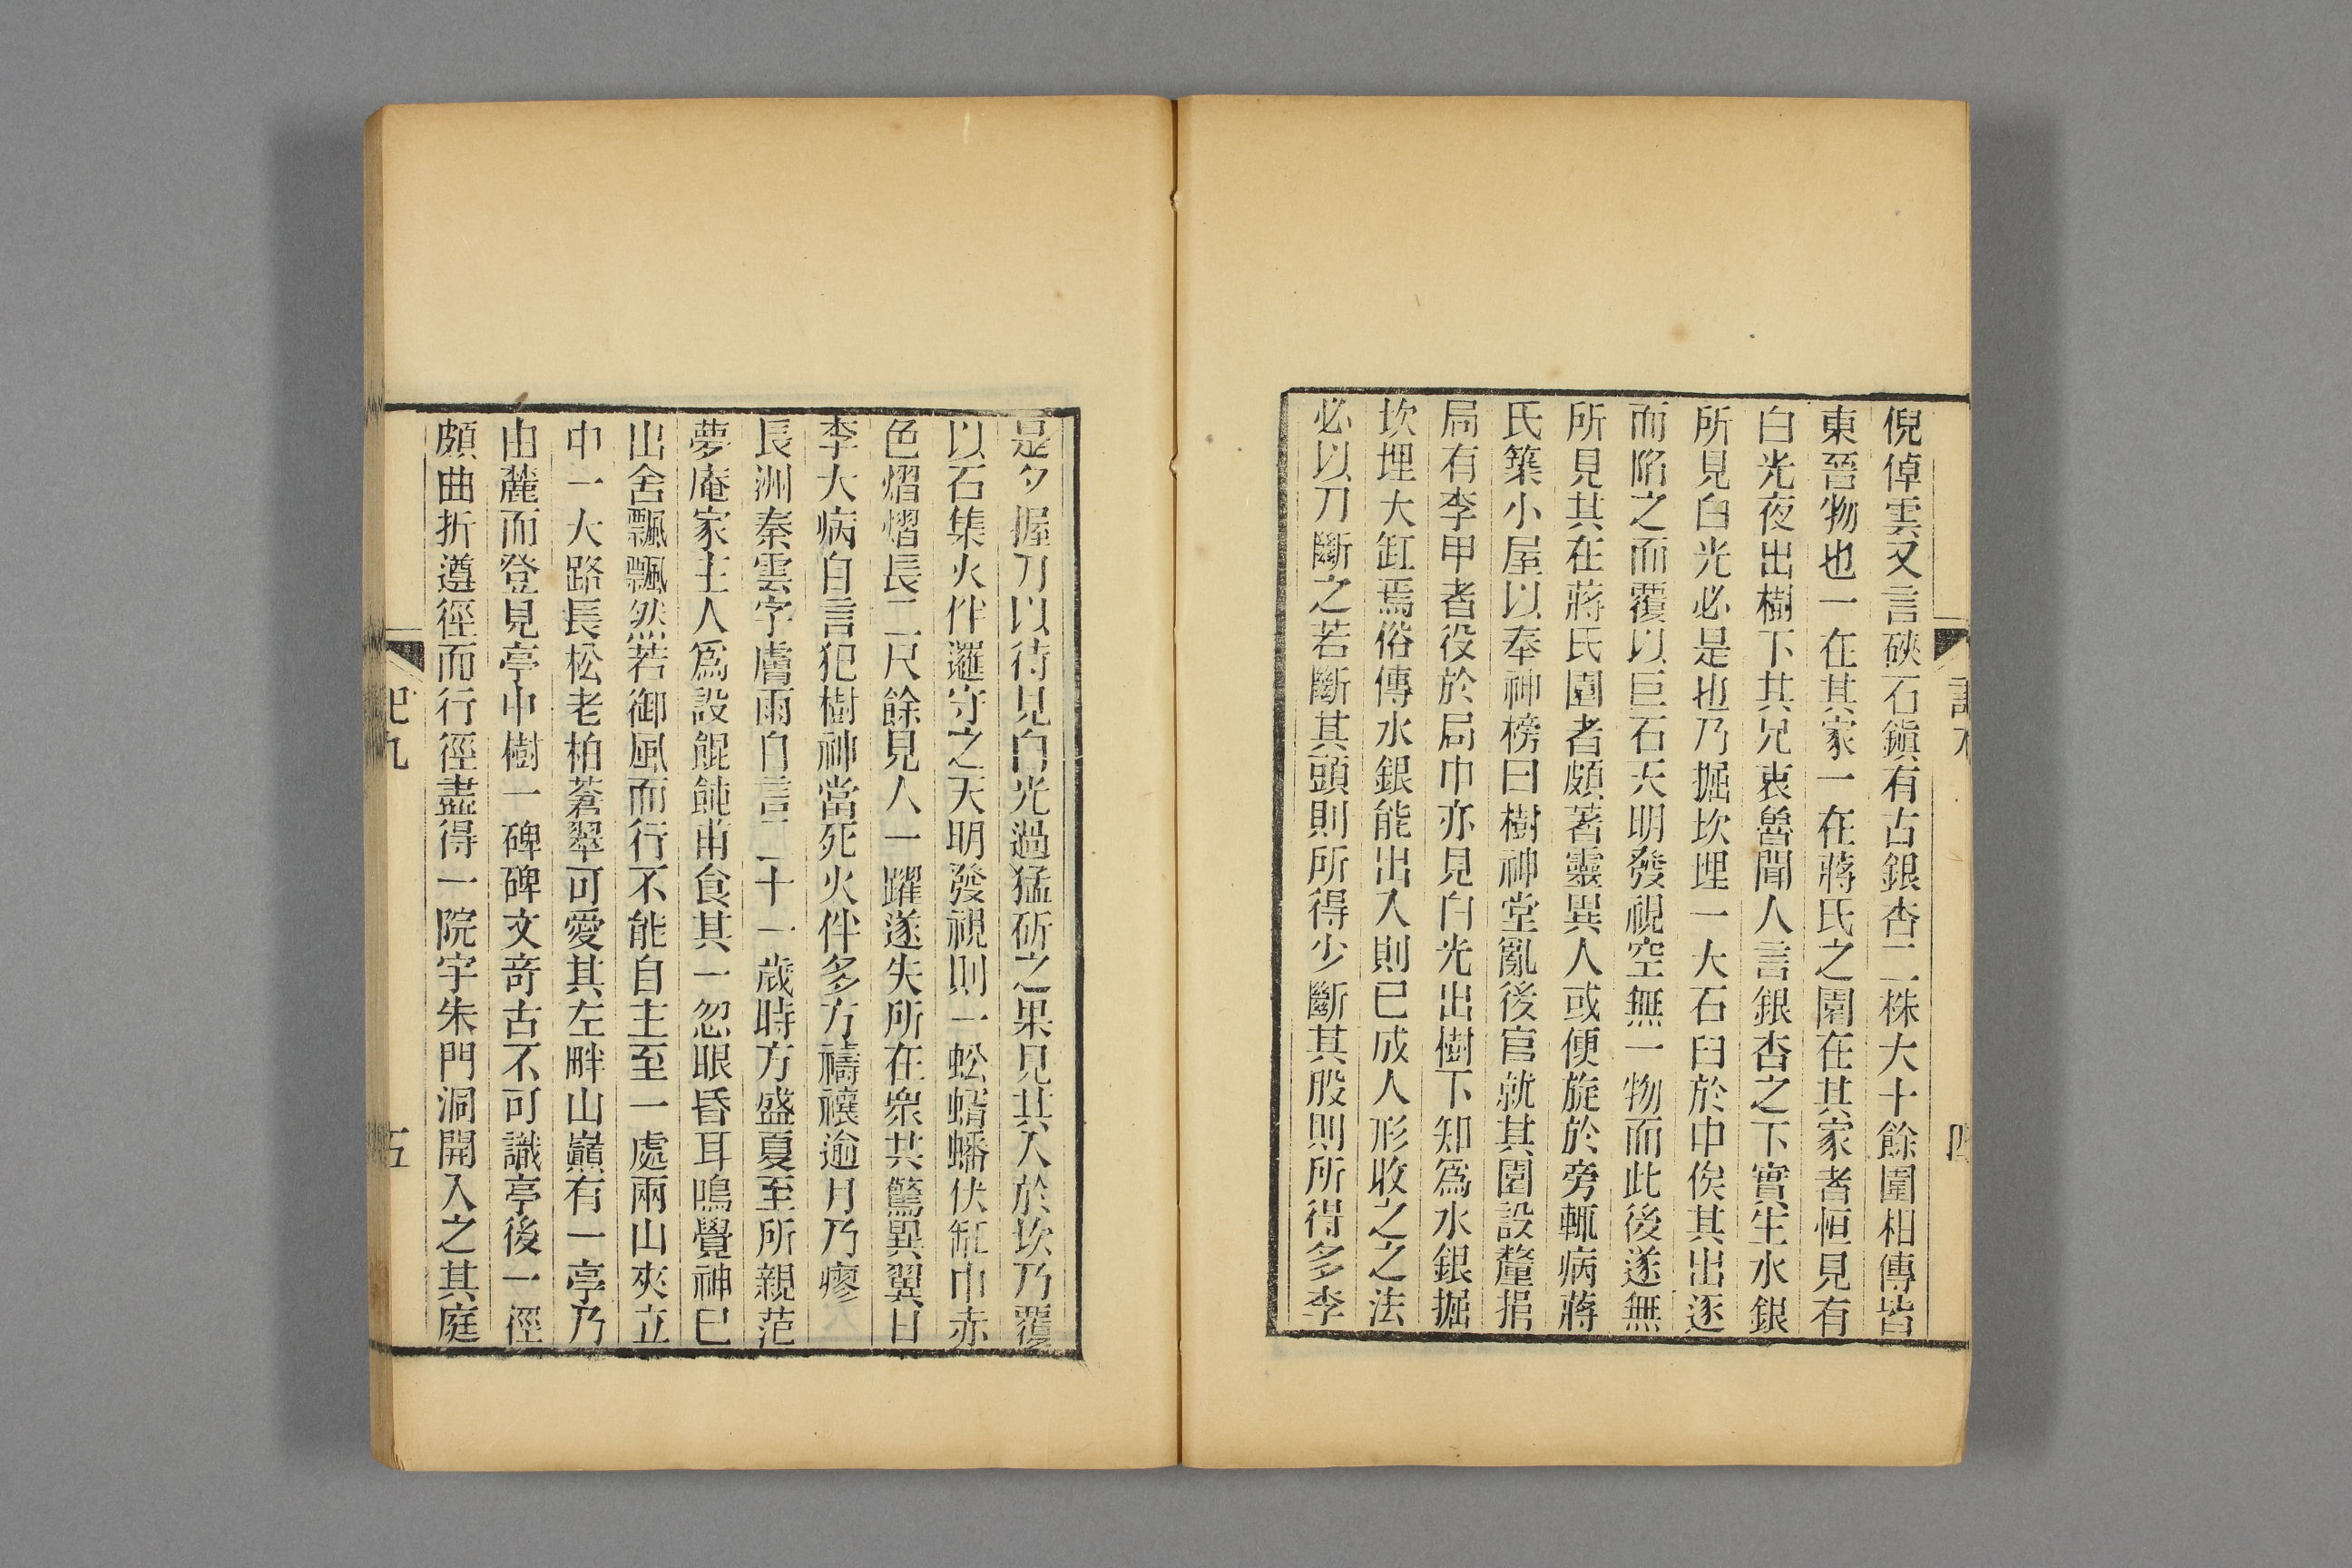 倪倬雲又言硤石鎭有古銀杏二株大十餘圍相傳皆
東晉物也一在其家一在蔣氏之園在其家者恒見有
白光夜出樹下其兄衷魯聞人言銀杏之下實生水銀
所見白光必是也乃掘坎埋一大石臼於中俟其出逐
而陷之而覆以巨石天明發視空無一物而此後遂無
所見其在蔣氏園者頗著靈異人或便旋於旁輒病蔣
氏築小屋以奉神榜曰樹神堂亂後官就其園設釐捐
局有李甲者役於局中亦見白光出樹下知爲水銀掘
坎埋大缸焉俗傳水銀能出入則已成人形收之之法
必以刀斷之若斷其頭則所得少斷其股則所得多李
是夕握刀以待見白光過猛斫之果見其入於坎乃覆
以石集火伴邏守之天明發視則一蚣蝑蟠伏缸中赤
色熠熠長二尺餘見人一躍遂失所在衆共驚異翼日
李大病自言犯樹神當死火伴多方禱禳逾月乃瘳
長洲秦雲字膚雨自言二十一歲時方盛夏至所親范
夢庵家主人爲設餛飩甫食其一忽眼昏耳鳴覺神已
出舍飄飄然若御風而行不能自主至一處兩山夾立
中一大路長松老柏蒼翠可愛其左畔山巓有一亭乃
由麓而登見亭中樹一碑碑文奇古不可識亭後一徑
頗曲折遵徑而行徑盡得一院宇朱門洞開入之其庭
記九
五